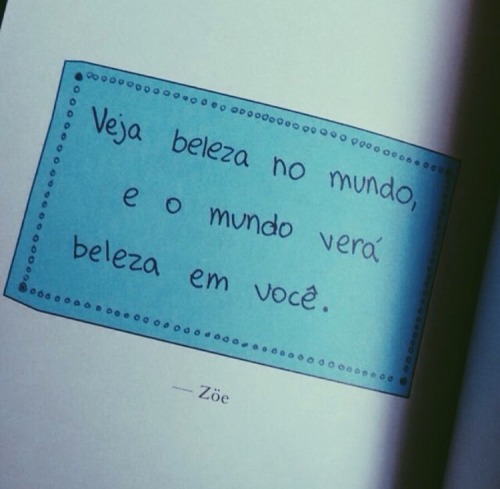 Veja beleza no mundo,
e o mundo verá
beleza em você.
— Zöe